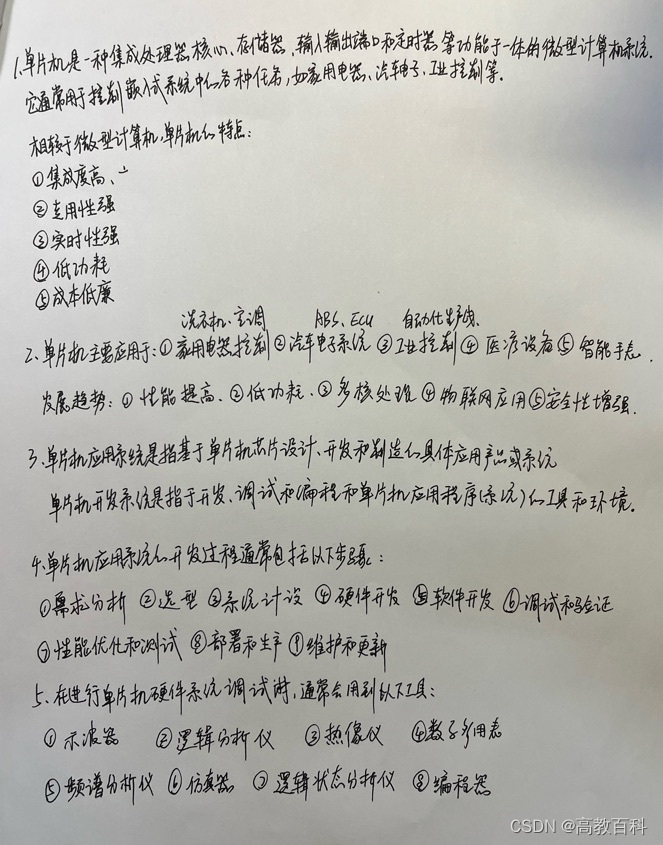 1.单片机是一种集成处理器核心、存储器、输入输出端口和定时器等功能于一体的微型计算机系统.
它通常用于控制嵌入式系统中的各种任务,如家用电器、汽车电子、工业控制等.
相较于微型计算机,单片机的特点:
①集成度高、
②专用性强
③实时性强
④低功耗
⑤成本低廉
洗衣机、空调 ABS、ECU 自动化生产线
2.单片机主要应用于:①家用电器控制②汽车电子系统③工业控制④医疗设备⑤智能手表.
发展趋势:①性能提高、②低功耗、③多核处理④物联网应用⑤安全性增强.
3.单片机应用系统是指基于单片机芯片设计、开发和制造的具体应用产品或系统
单片机开发系统是指于开发、调试和编程和单片机应用程序(系统)的工具和环境.
4.单片机应用系统的开发过程通常包括以下步骤:
①需求分析 ②选型 ③系统计设 ④硬件开发 ⑤软件开发 ⑥调试和验证
⑦性能优化和测试 ⑧部署和生产 ⑨维护和更新
5、在进行单片机硬件系统调试时,通常会用到以下工具:
①示波器 ②逻辑分析仪 ③热像仪 ④数字多用表
⑤频谱分析仪 ⑥仿真器 ⑦逻辑状态分析仪 ⑧编程器
CSDN @高教百科